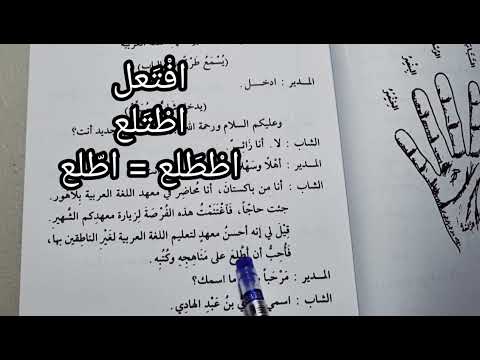 (يُسْمَعُ
افْتَعل
المدير : ادخل.
اطْتَلع
وعليكم السلام ورحمة جديد أنت؟
الشاب : لا. أنا زائر
اطْطَلع = اطّلع
المدير : أهْلاً وسَهْلاً
الشاب : أنا من باكستان، أنا مُحاضِر في معهد اللغة العربية بِلاهور.
جئت حاجًّا، فَاغْتَنَمْتُ هذه الفُرْصَةَ لِزيارة معهدِكم الشَّهير.
قِيْلَ لي إنه أحسنُ معهدٍ لتعليم اللغة العربية لغَيْرِ الناطقين بها،
فَأُحِبُّ أن أطَّلِعَ على مَنَاهِجِه وكُتُبِه.
المدير : مَرْحَباً ما اسمك؟
الشاب : اسمي بنُ عَبْدِ الهادِي.